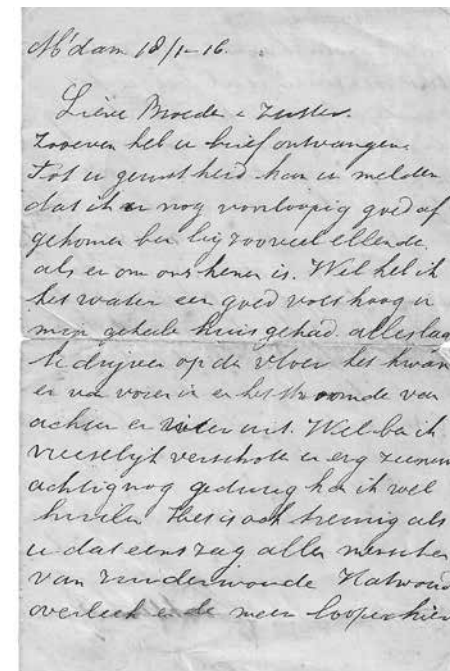 M'dam 18/1-16.
Liève Broeder e Zuster.
Zooeven heb u brief ontvangen.
Tot u gerustheid kan u melden
dat ik er nog voorloopig goed af
gekomen ben bij zooveel ellende.
als er om ons henen is. Wel heb ik
het water een goed voet hoog in
mijn geheele huis gehad alles lag
te drijven op de vloer het kwam
er van voren in en het stroomde van
achter er weer uit. Wel ben ik
vreeselijk verschoten en erg zenuw
achtig nog gedurig kan ik wel
huilen Het is ook treurig als
u dat eens zag alle menschen
van Zunderwoude Katwoud
overleek en de meer loopen hier